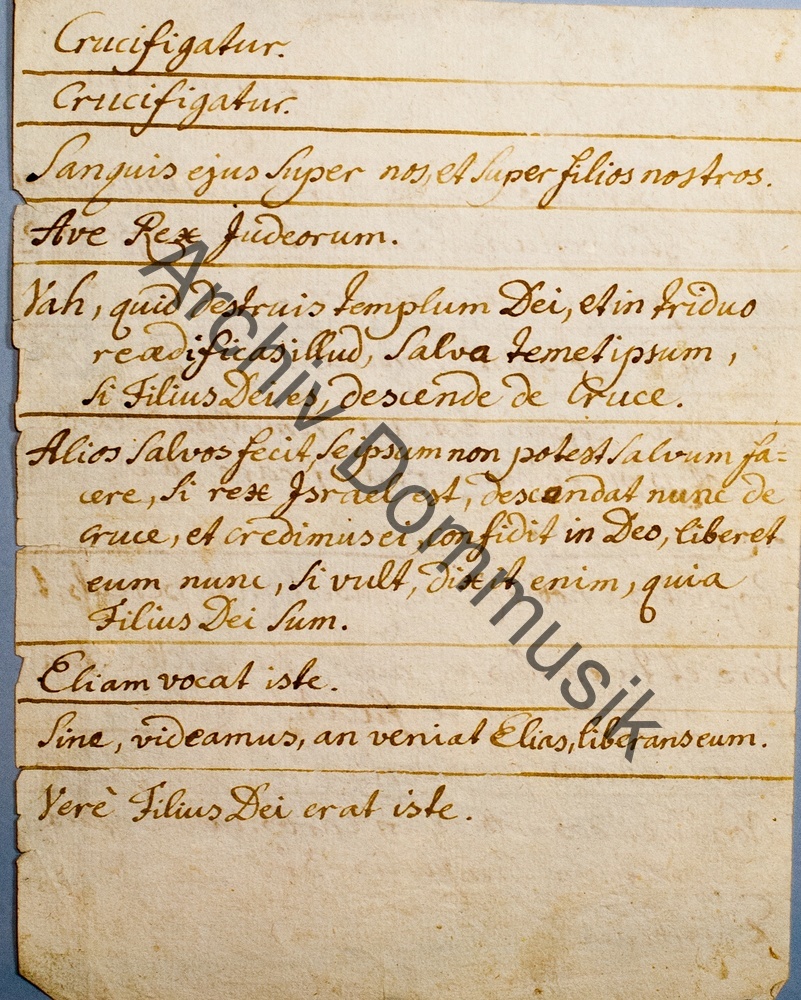 Crucifigatur.
Crucifigatur.
Sanguis ejus super nos, et super filios nostros.
Ave Rex Judeorum.
Vah, quid destruis templum Dei, et in triduo
reædificas illud, salva temetipsum,
si Filius Dei es, descende de Cruce.
Alios salvos fecit, seipsum non potest salvum fa=
cere, si rex Israel est, descendat nunc de
cruce, et credimus ei, confidit in Deo, liberet
eum nunc, si vult, dixit enim, quia
Filius Dei sum.
Eliam vocat iste.
Sine, videamus, an veniat Elias, liberans eum.
Verè Filius Dei erat iste.
Archiv Dommusik